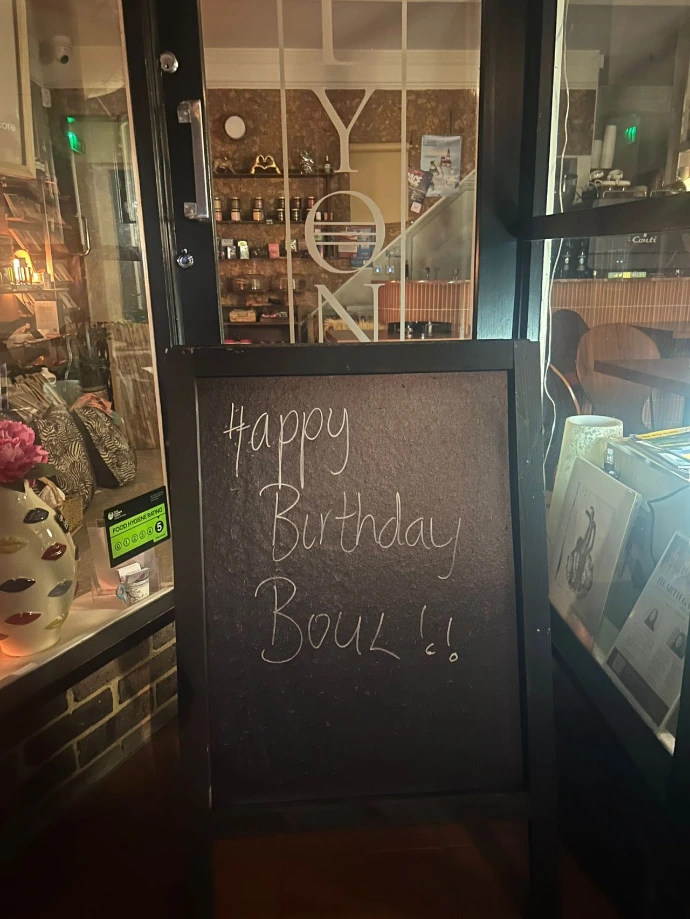 L
Y
O
N
Happy
Birthday
BOUL !!
FOOD HYGIENE RATING
0 1 2 3 4 5
Conti